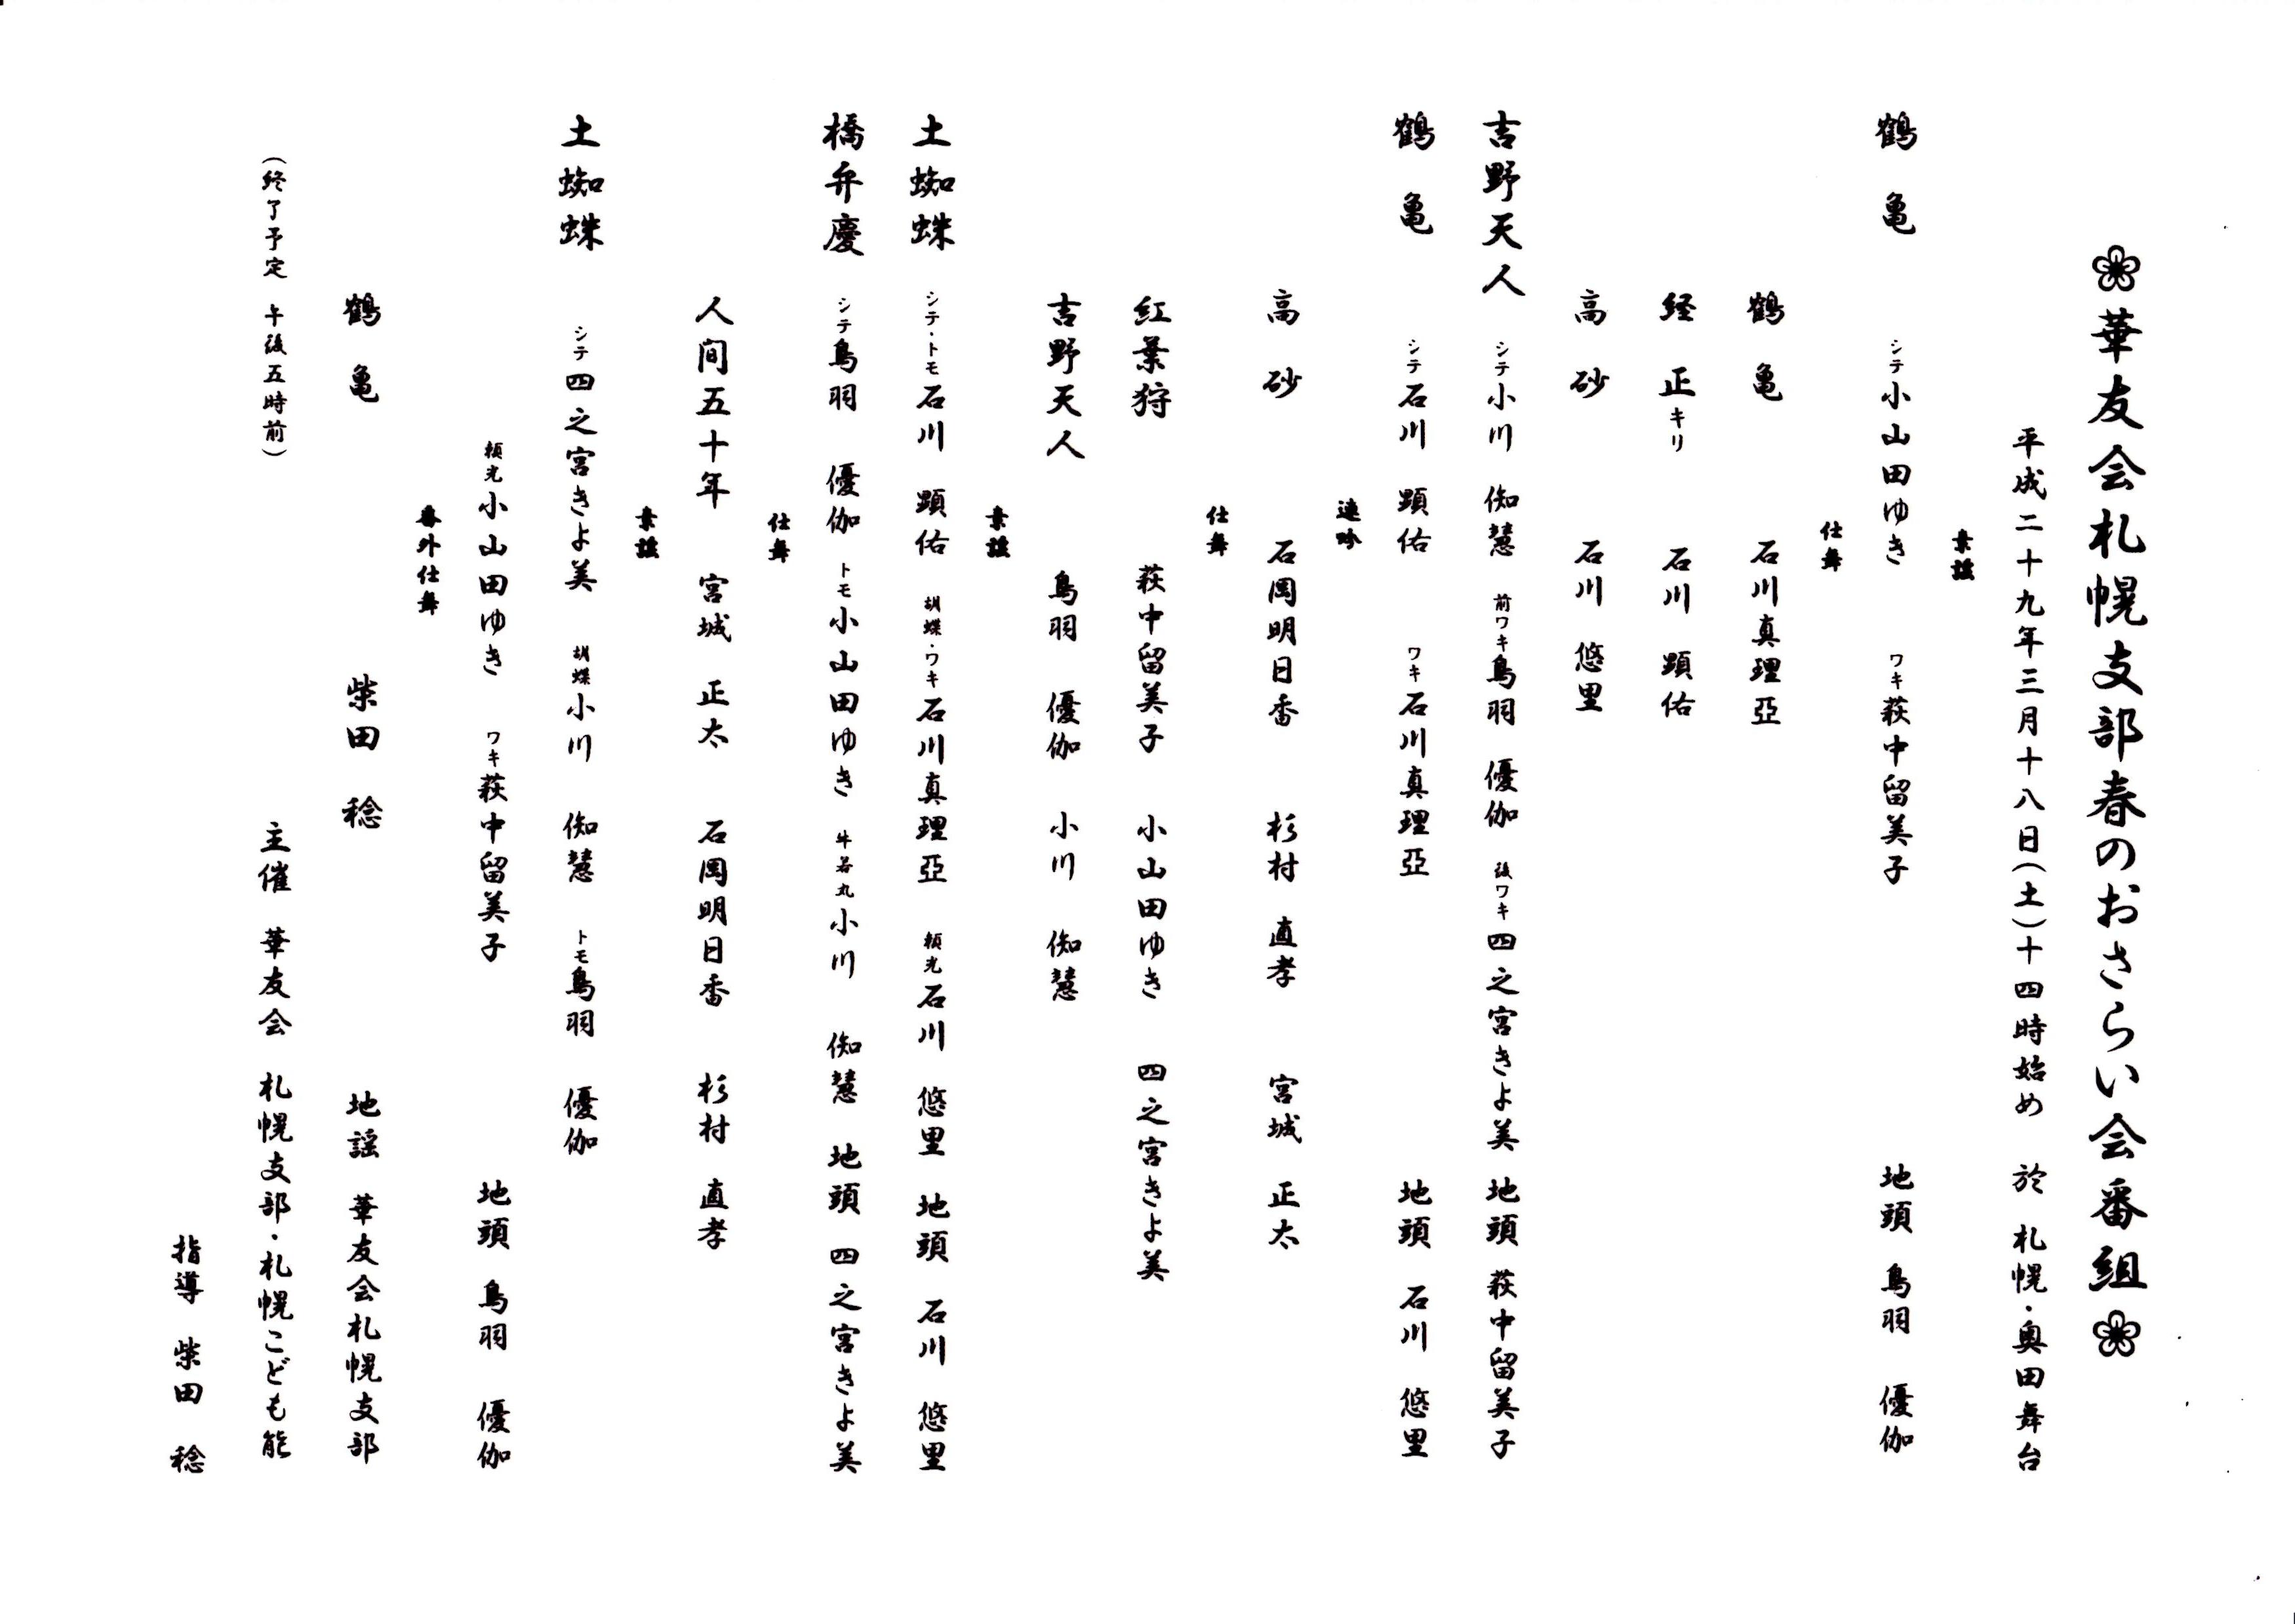 華友会札幌支部春のおさらい会番組
平成二十九年三月十八日（土）十四時始め 於 札幌・奥田舞台
素謡
鶴亀 シテ 小山田ゆき ワキ 萩中留美子 地頭 鳥羽 優伽
仕舞
鶴亀 石川真理亞
経正キリ 石川 顕佑
高砂 石川 悠里
吉野天人 シテ 小川 倁慧 前ワキ 鳥羽 優伽 後ワキ 四之宮きよ美 地頭 萩中留美子
鶴亀 シテ 石川 顕佑 ワキ 石川真理亞 地頭 石川 悠里
連吟
高砂 石岡明日香 杉村 直孝 宮城 正太
仕舞
紅葉狩 萩中留美子 小山田ゆき 四之宮きよ美
吉野天人 鳥羽 優伽 小川 倁慧
素謡
土蜘蛛 シテ・トモ 石川 顕佑 胡蝶・ワキ 石川真理亞 頼光 石川 悠里 地頭 石川 悠里
橋弁慶 シテ 鳥羽 優伽 トモ 小山田ゆき 牛若丸 小川 倁慧 地頭 四之宮きよ美
仕舞
人間五十年 宮城 正太 石岡明日香 杉村 直孝
素謡
土蜘蛛 シテ 四之宮きよ美 胡蝶 小川 倁慧 トモ 鳥羽 優伽
頼光 小山田ゆき ワキ 萩中留美子 地頭 鳥羽 優伽
番外仕舞
鶴亀 柴田 稔 地謡 華友会札幌支部
（終了予定 午後五時前） 主催 華友会 札幌支部・札幌こども能
指導 柴田 稔